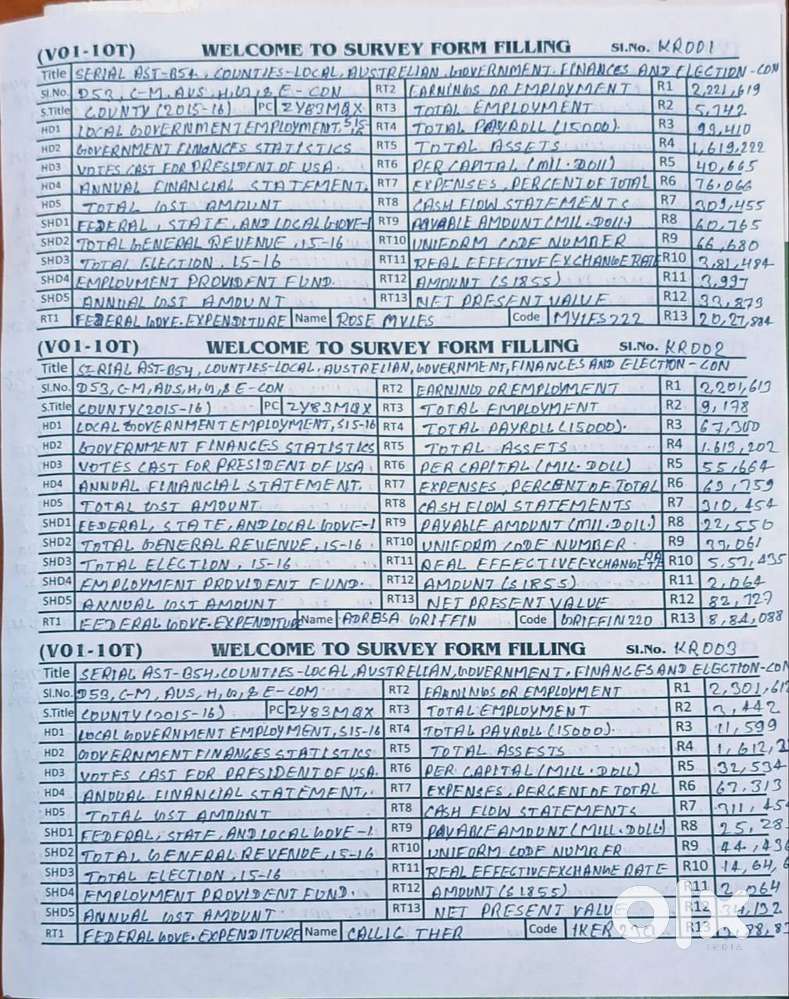 (V01-10T) WELCOME TO SURVEY FORM FILLING SI.No. KR001
Title SERIAL AST-B54, COUNTIES-LOCAL, AUSTRELIAN, GOVERNMENT. FINANCES AND ELECTION-CON
SI.No. D53, C-M, AUS, H, G, & E-CON RT2 EARNINGS OR EMPLOYMENT R1 2,221,619
S.Title COUNTY (2015-16) PC 2Y83MQX RT3 TOTAL EMPLOYMENT R2 5,742
HD1 LOCAL GOVERNMENT EMPLOYMENT, S15-16 RT4 TOTAL PAYROLL (15000). R3 99,410
HD2 GOVERNMENT FINANCES STATISTICS RT5 TOTAL ASSETS R4 1,619,222
HD3 VOTES CAST FOR PRESIDENT OF USA. RT6 PER CAPITAL (MIL. DOLL) R5 40,665
HD4 ANNUAL FINANCIAL STATEMENT. RT7 EXPENSES, PERCENT OF TOTAL R6 76,066
HD5 TOTAL COST AMOUNT RT8 CASH FLOW STATEMENTS R7 309,455
SHD1 FEDERAL, STATE, AND LOCAL GOVE-1 RT9 PAYABLE AMOUNT (MIL. DOLL) R8 60,765
SHD2 TOTAL GENERAL REVENUE, 15-16 RT10 UNIFORM CODE NUMBER R9 66,680
SHD3 TOTAL ELECTION, 15-16 RT11 REAL EFFECTIVE EXCHANGE RATE R10 3,81,484
SHD4 EMPLOYMENT PROVIDENT FUND. RT12 AMOUNT (S1855) R11 3,997
SHD5 ANNUAL COST AMOUNT RT13 NET PRESENT VALUE R12 33,873
RT1 FEDERAL GOVE. EXPENDITURE Name ROSE MYLES Code MYLES222 R13 20,27,884
(V01-10T) WELCOME TO SURVEY FORM FILLING SI.No. KR002
Title SERIAL AST-B54, COUNTIES-LOCAL, AUSTRELIAN, GOVERNMENT, FINANCES AND ELECTION-CON
SI.No. D53, C-M, AUS, H, G, & E-CON RT2 EARNING OR EMPLOYMENT R1 2,201,613
S.Title COUNTY (2015-16) PC 2Y83MQX RT3 TOTAL EMPLOYMENT R2 9,178
HD1 LOCAL GOVERNMENT EMPLOYMENT, S15-16 RT4 TOTAL PAYROLL (15000). R3 67,300
HD2 GOVERNMENT FINANCES STATISTICS RT5 TOTAL ASSETS R4 1.613,202
HD3 VOTES CAST FOR PRESIDENT OF USA RT6 PER CAPITAL (MIL. DOLL) R5 55,664
HD4 ANNUAL FINANCIAL STATEMENT. RT7 EXPENSES, PERCENT OF TOTAL R6 69,759
HD5 TOTAL COST AMOUNT RT8 CASH FLOW STATEMENTS R7 310,454
SHD1 FEDERAL, STATE, AND LOCAL GOVE-1 RT9 PAYABLE AMOUNT (MIL. DOLL.) R8 22,550
SHD2 TOTAL GENERAL REVENUE, 15-16 RT10 UNIFORM CODE NUMBER. R9 39,061
SHD3 TOTAL ELECTION, 15-16 RT11 REAL EFFECTIVE EXCHANGE RATE R10 5,57,435
SHD4 EMPLOYMENT PROVIDENT FUND. RT12 AMOUNT (S1855) R11 2,064
SHD5 ANNUAL COST AMOUNT RT13 NET PRESENT VALUE R12 82,727
RT1 FEDERAL GOVE. EXPENDITURE Name GRIFFIN Code GRIFFIN220 R13 8,84,088
(V01-10T) WELCOME TO SURVEY FORM FILLING SI.No. KR003
Title SERIAL AST-B54, COUNTIES-LOCAL, AUSTRELIAN, GOVERNMENT, FINANCES AND ELECTION-CON
SI.No. D53, C-M, AUS, H, G, & E-COM RT2 EARNINGS OR EMPLOYMENT R1 2,301,612
S.Title COUNTY (2015-16) PC 2Y83MQX RT3 TOTAL EMPLOYMENT R2 2,442
HD1 LOCAL GOVERNMENT EMPLOYMENT, S15-16 RT4 TOTAL PAYROLL (15000). R3 11,599
HD2 GOVERNMENT FINANCES STATISTICS RT5 TOTAL ASSESTS R4 1,612,2
HD3 VOTES CAST FOR PRESIDENT OF USA. RT6 PER CAPITAL (MILL. DOLL) R5 32,534
HD4 ANNUAL FINANCIAL STATEMENT. RT7 EXPENSES, PERCENT OF TOTAL R6 67,313
HD5 TOTAL COST AMOUNT RT8 CASH FLOW STATEMENTS R7 311,454
SHD1 FEDERAL, STATE, AND LOCAL GOVE-1 RT9 PAYABLE AMOUNT (MILL. DOLL) R8 25,28
SHD2 TOTAL GENERAL REVENUE, 15-16 RT10 UNIFORM CODE NUMBER R9 44,436
SHD3 TOTAL ELECTION, 15-16 RT11 REAL EFFECTIVE EXCHANGE RATE R10 14,64,6
SHD4 EMPLOYMENT PROVIDENT FUND. RT12 AMOUNT (S1855) R11 2,064
SHD5 ANNUAL COST AMOUNT RT13 NET PRESENT VALUE R12 34,132
RT1 FEDERAL GOVE. EXPENDITURE Name CALLIC THER Code R13
olx
INDIA